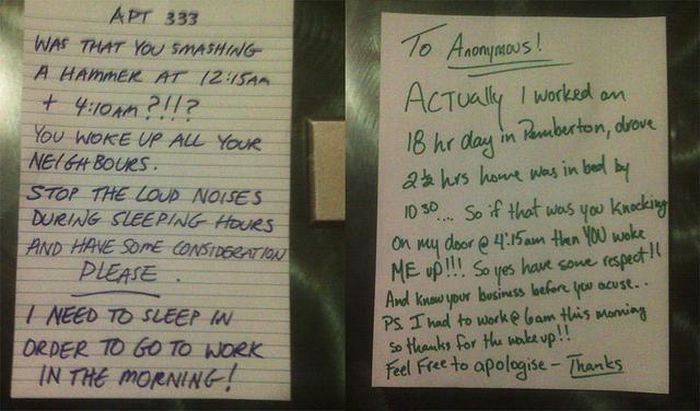 APT 333
WAS THAT YOU SMASHING
A HAMMER AT 12:15AM
+ 4:10AM?!!?
YOU WOKE UP ALL YOUR
NEIGHBOURS.
STOP THE LOUD NOISES
DURING SLEEPING HOURS
AND HAVE SOME CONSIDERATION
PLEASE.
I NEED TO SLEEP IN
ORDER TO GO TO WORK
IN THE MORNING!
To Anonymous!
ACTUALLY I worked an
18 hr day in Pemberton, drove
2½ hrs home was in bed by
10 30... So if that was you knocking
on my door @ 4:15am then YOU woke
ME up!!! So yes have some respect!!
And know your business before you acuse..
PS. I had to work @ 6am this morning
so thanks for the wake up!!
Feel Free to apologise - Thanks